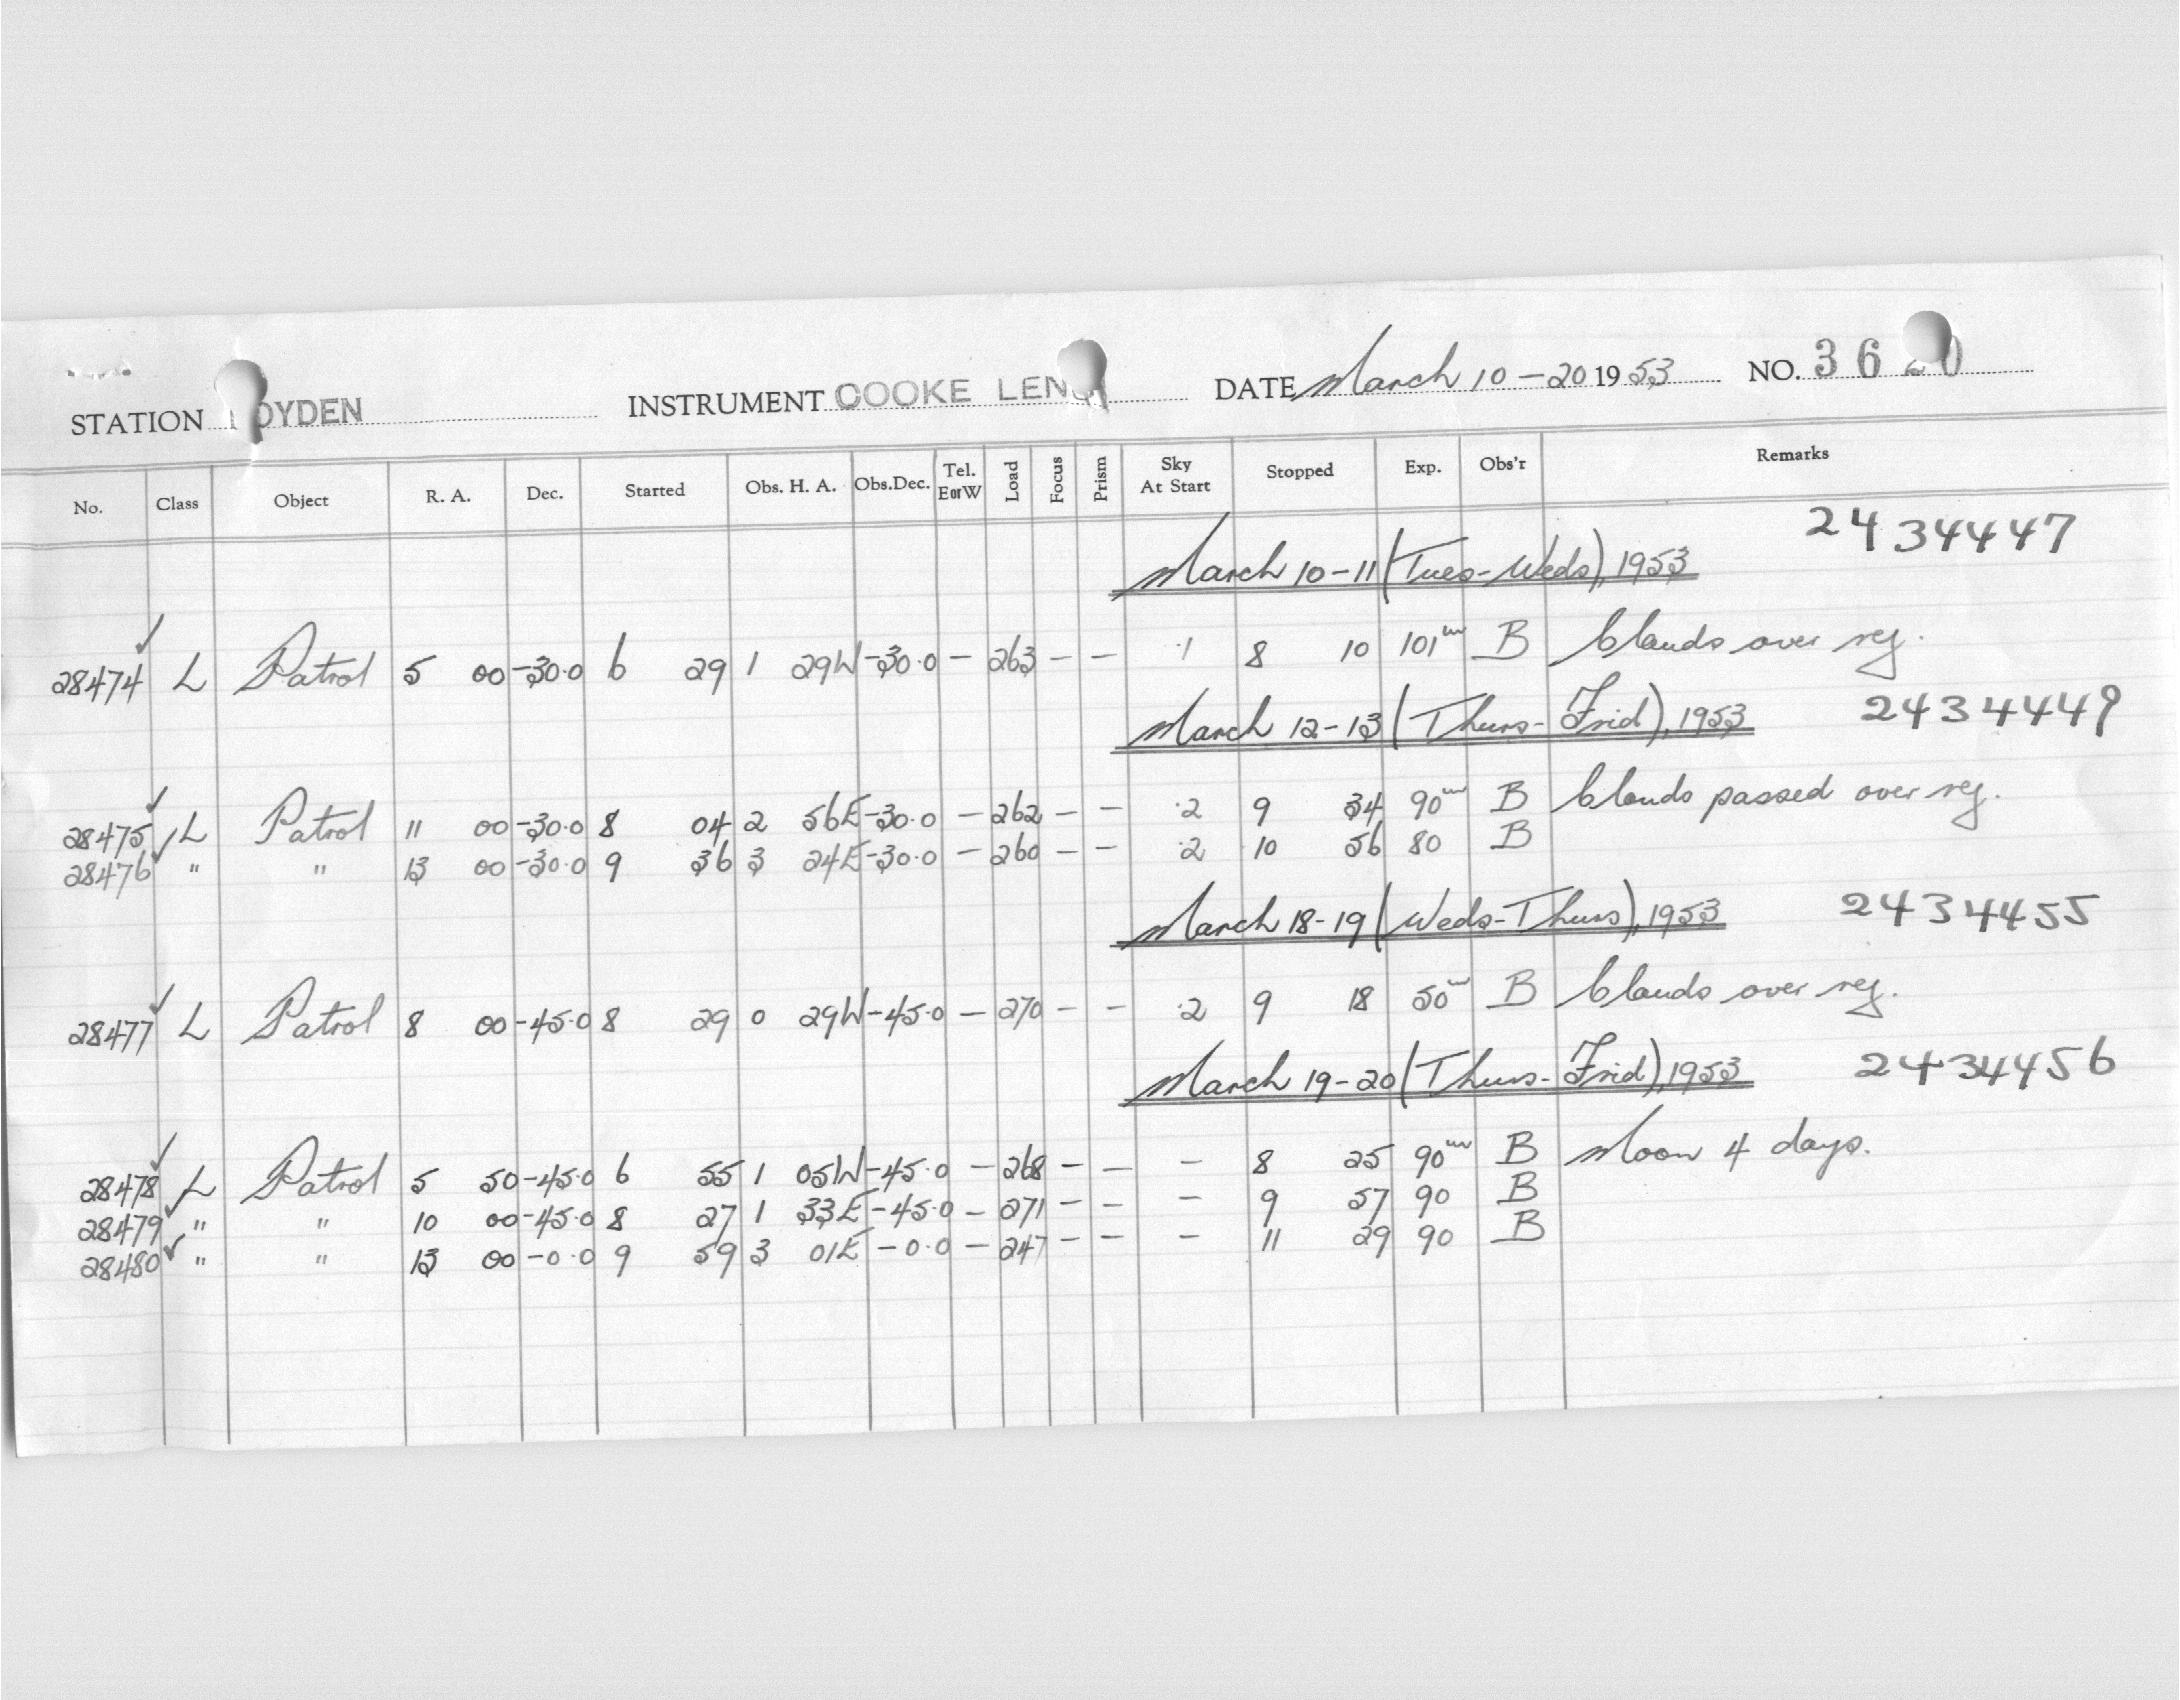 STATION BOYDEN INSTRUMENT COOKE LENS DATE March 10-20 1953 NO. 3620
No. Class Object R. A. Dec. Started Obs. H. A. Obs.Dec. Tel. E or W Load Focus Prism Sky At Start Stopped Exp. Obs'r Remarks
March 10-11 (Tues-Weds), 1953 2434447
28474 ✓ L Patrol 5 00 -30.0 6 29 1 29W -30.0 - 263 - - .1 8 10 101m B Clouds over reg.
March 12-13 (Thurs-Frid), 1953 2434449
28475 ✓ L Patrol 11 00 -30.0 8 04 2 56E -30.0 - 262 - - .2 9 34 90m B Clouds passed over reg.
28476 ✓ " " 13 00 -30.0 9 36 3 24E -30.0 - 260 - - .2 10 56 80 B
March 18-19 (Weds-Thurs), 1953 2434455
28477 ✓ L Patrol 8 00 -45.0 8 29 0 29W -45.0 - 270 - - .2 9 18 50m B Clouds over reg.
March 19-20 (Thurs-Frid), 1953 2434456
28478 ✓ L Patrol 5 50 -45.0 6 55 1 05W -45.0 - 268 - - - 8 25 90m B Moon 4 days.
28479 ✓ " " 10 00 -45.0 8 27 1 33E -45.0 - 271 - - - 9 57 90 B
28480 ✓ " " 13 00 -0.0 9 59 3 01E -0.0 - 247 - - - 11 29 90 B